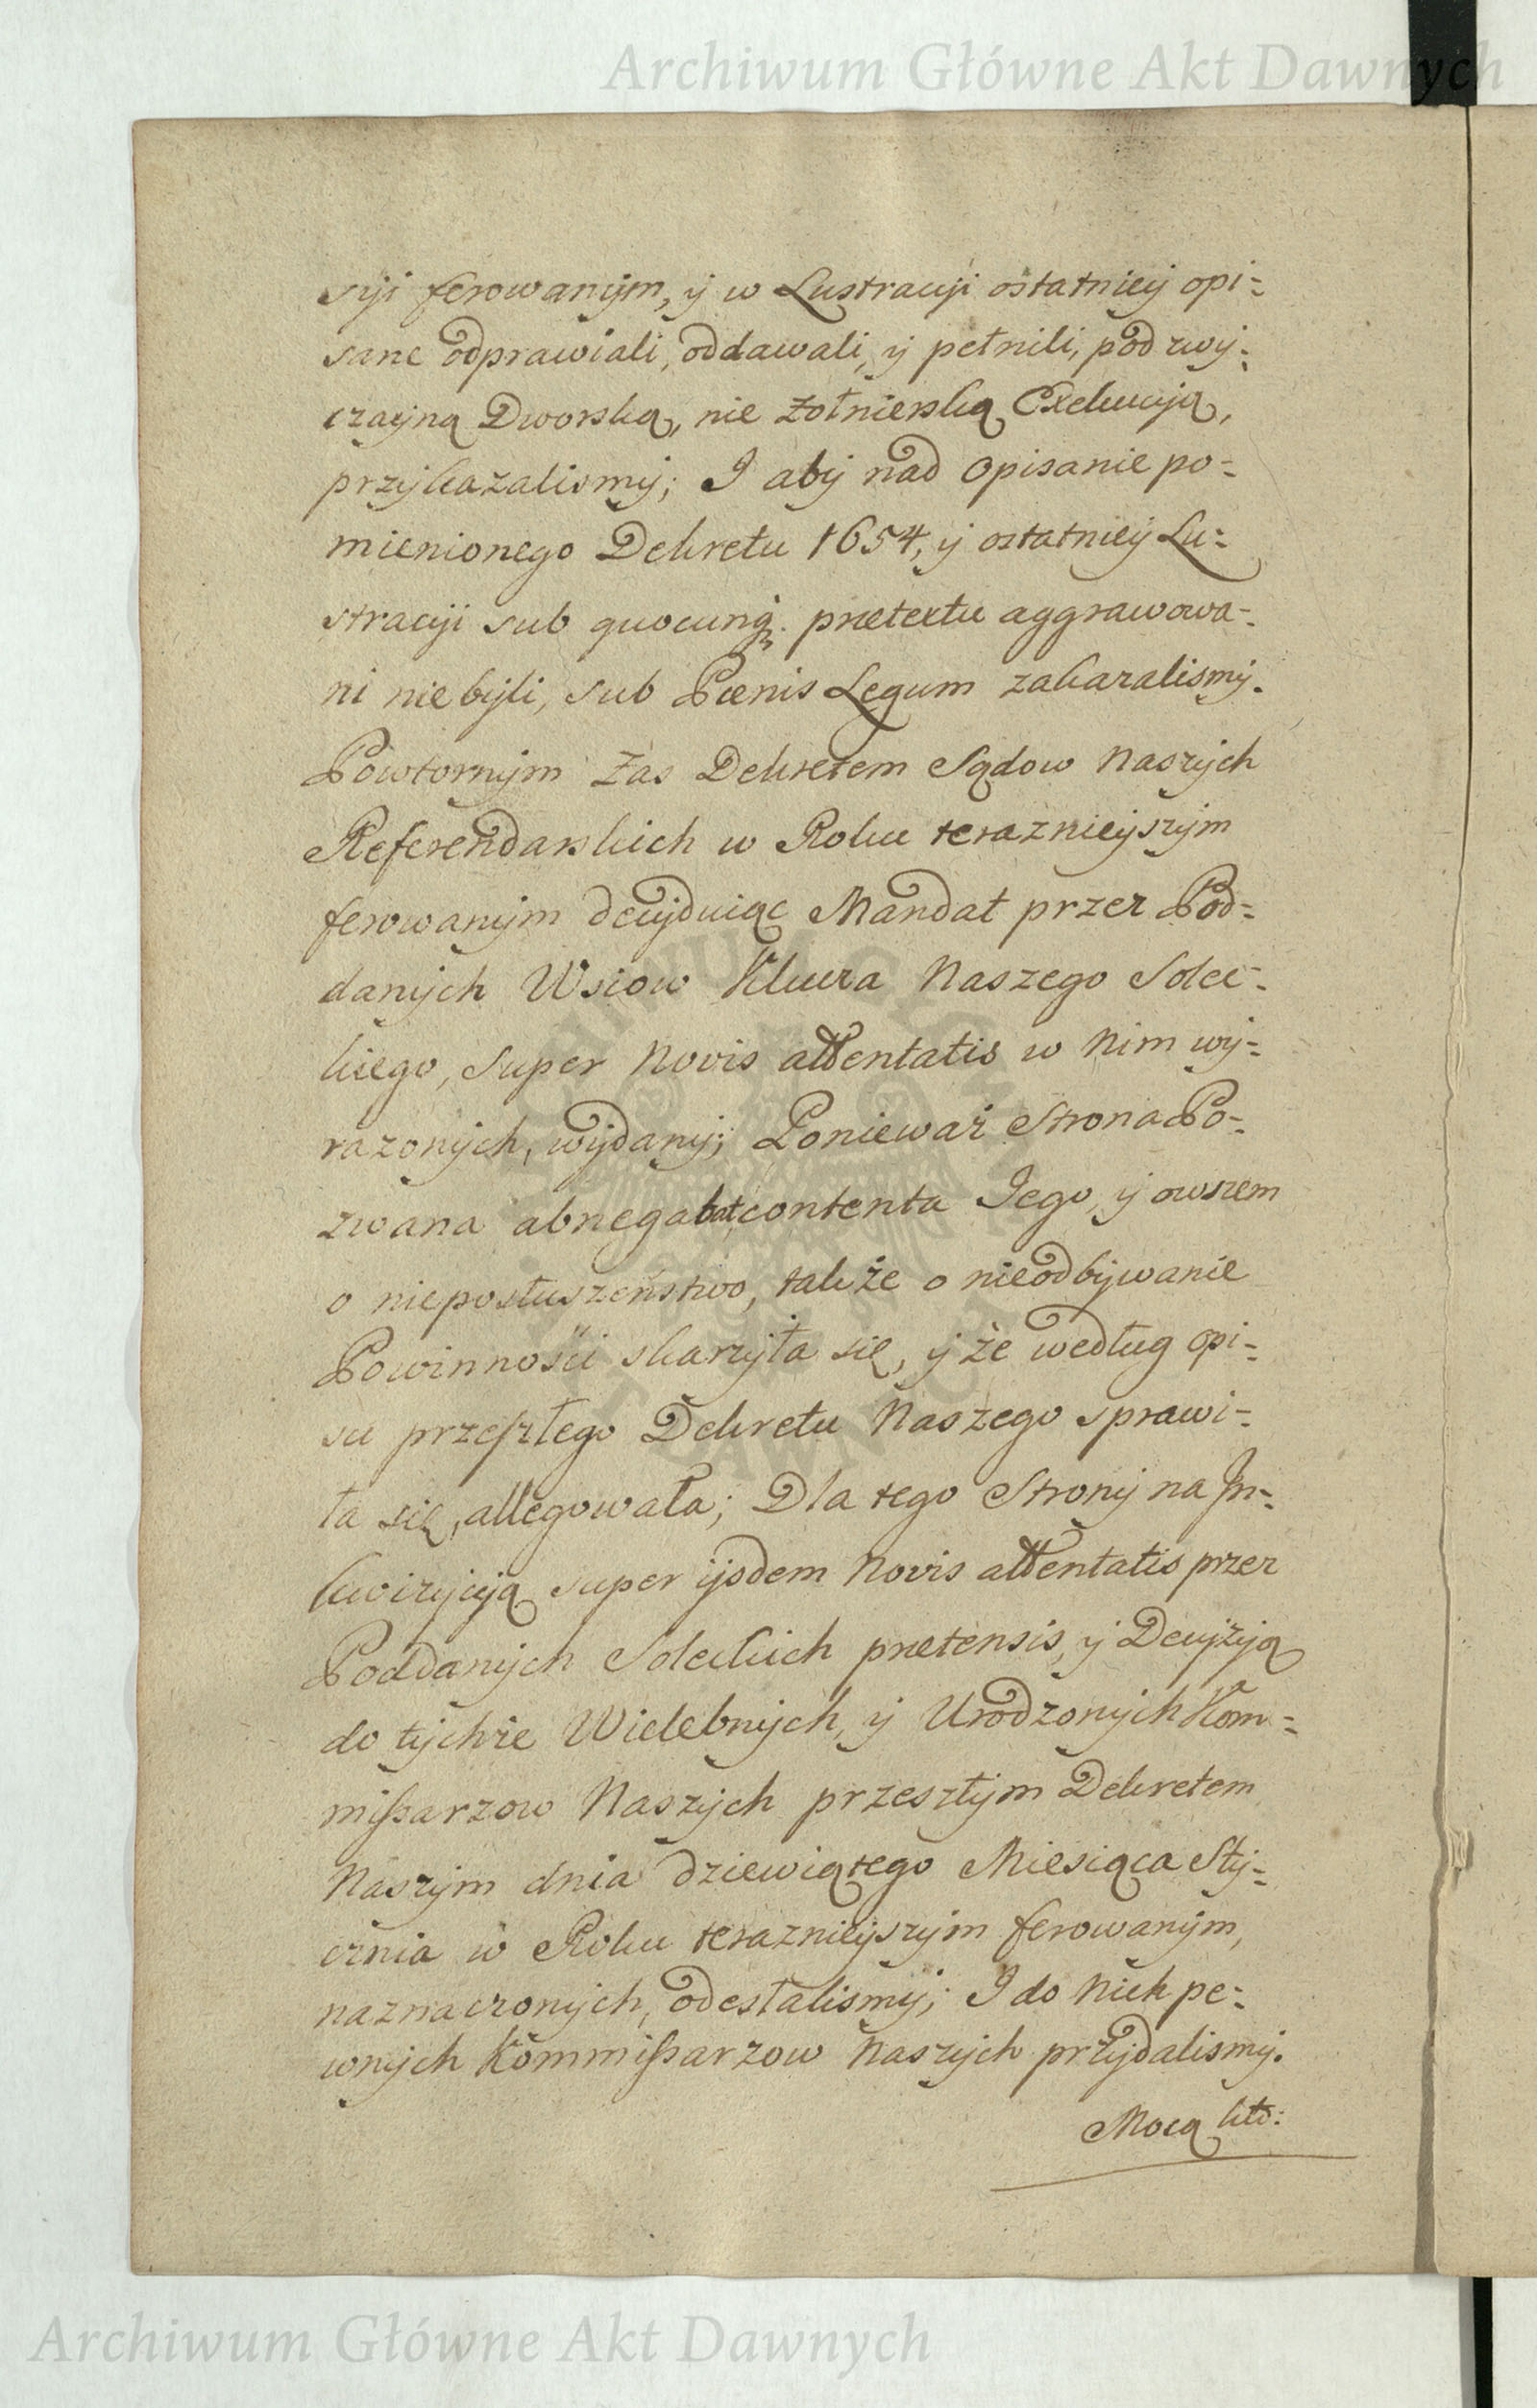 Archiwum Główne Akt Dawnych
syi ferowanym, y w Lustracyi ostatniey opi-
sane odprawiali, oddawali, y pełnili, pod zwy-
czayną Dworską, nie żołnierską Exekucyą,
przykazalismy; I aby nad opisanie po-
mienionego Dekretu 1654, y ostatniey Lu-
stracyi sub quocunq. prætextu aggrawowa-
ni nie byli, sub Pœnis Legum zakazalismy.
Powtornym zas Dekretem Sądow Naszych
Referendarskich w Roku teraznieyszym
ferowanym decyduiąc Mandat przez Pod-
danych Wsiow Klucza Naszego Solec-
kiego, super Novis attentatis w Nim wy-
razonych, wydany; Poniewaz Strona Po-
zwana abnegabat contenta Jego, y owszem
o nieposłuszeństwo, także o nieodbywanie
Powinności skarzyła się, y że według opi-
su przeszłego Dekretu Naszego sprawi-
ła się, allegowała; Dla tego Strony na In-
kwizycyą super ijsdem Novis attentatis przez
Poddanych Soleckich prætensis, y Decyzyą
do tychże Wielebnych, y Urodzonych Kom-
missarzow Naszych przeszłym Dekretem
Naszym dnia dziewiątego Miesiąca Sty-
cznia w Roku teraznieyszym ferowanym,
naznaczonych, odesłalismy; I do Nich pe-
wnych Kommissarzow Naszych przydalismy.
Mocą któ:
Archiwum Główne Akt Dawnych